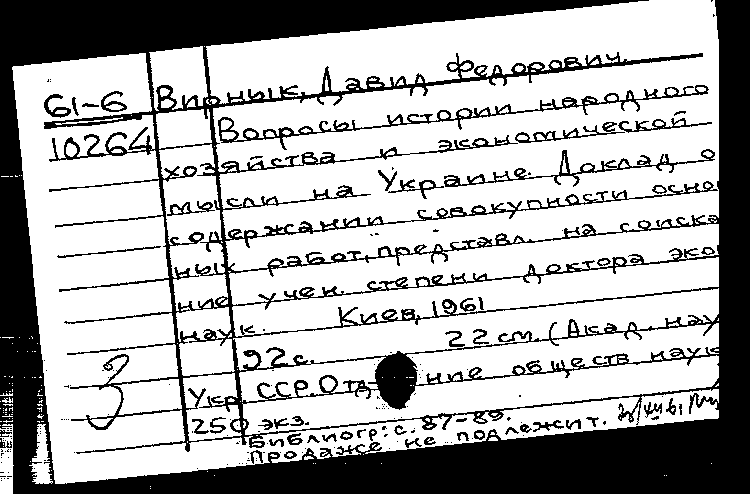 61-6 Вирнык, Давид Федорович.
10264 Вопросы истории народного
хозяйства и экономической
мысли на Украине. Доклад о
содержании совокупности осно
ных работ, представл. на соиска
ние учен. степени доктора эко
наук. Киев, 1961
92 с. 22 см. (Акад. нау
Укр. ССР. Отд ние обществ. наук
250 экз.
Библиогр: с. 87-89.
Продаже не подлежит.
3